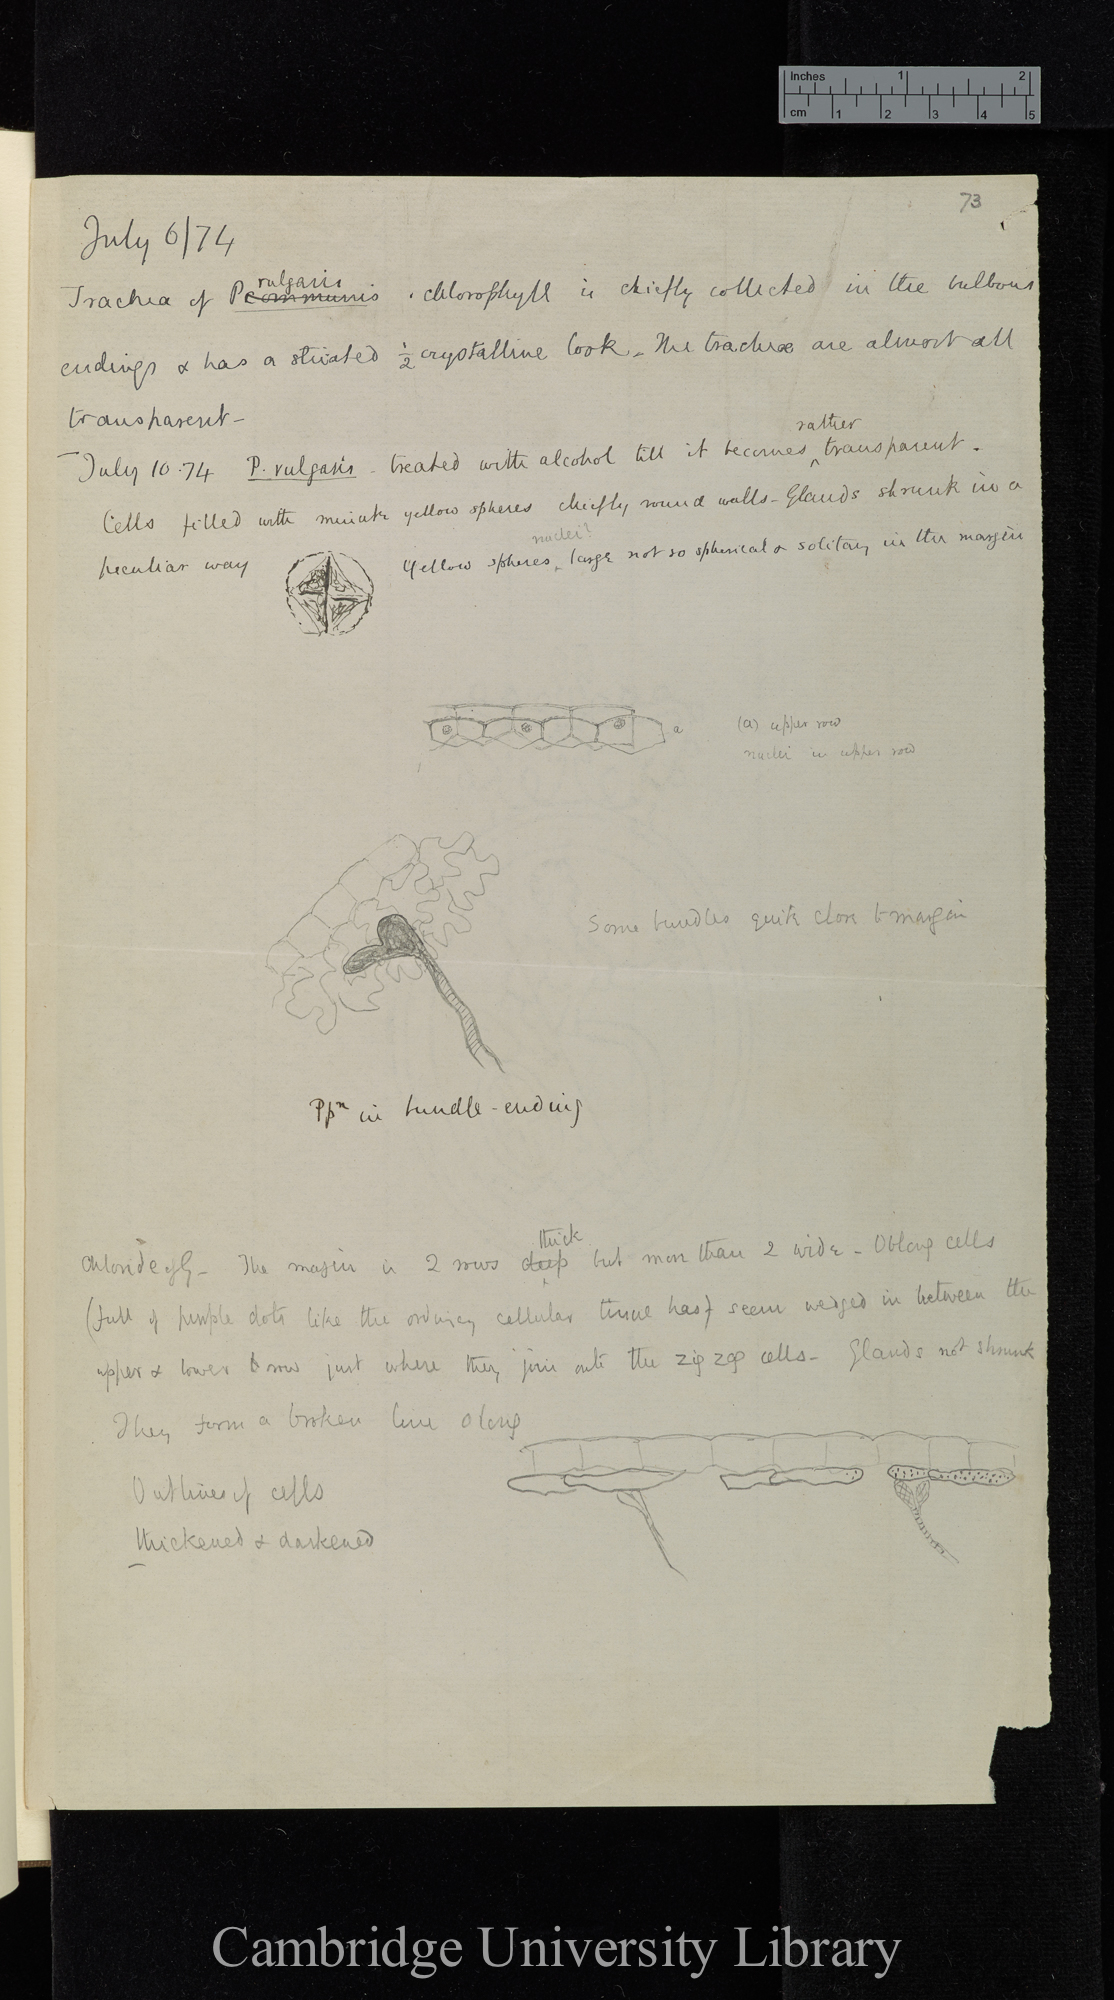 Inches 1 2
cm 1 2 3 4 5
73
July 6/74
vulgaris
Trachea of P communis . chlorophyll is chiefly collected in the bulbous
endings & has a striated ½ crystalline look. The tracheæ are almost all
transparent –
rather
July 10.74 P. vulgaris – treated with alcohol till it becomes ^ transparent.
Cells filled with minute yellow spheres chiefly round walls – Glands shrunk in a
nuclei?
peculiar way Yellow spheres ^ large not so spherical & solitary in the margin
a (a) upper row
nuclei in upper row
Some bundles quite close to margin
Ppn in bundle-ending
thick
Chloride of G – The margin is 2 rows deep but more than 2 wide – Oblong cells
(full of purple dots like the ordinary cellular tissue has) seem wedged in between the
upper & lower row just where they join onto the zig zag cells – Glands not shrunk
They form a broken line along
Outlines of cells
thickened & darkened
Cambridge University Library